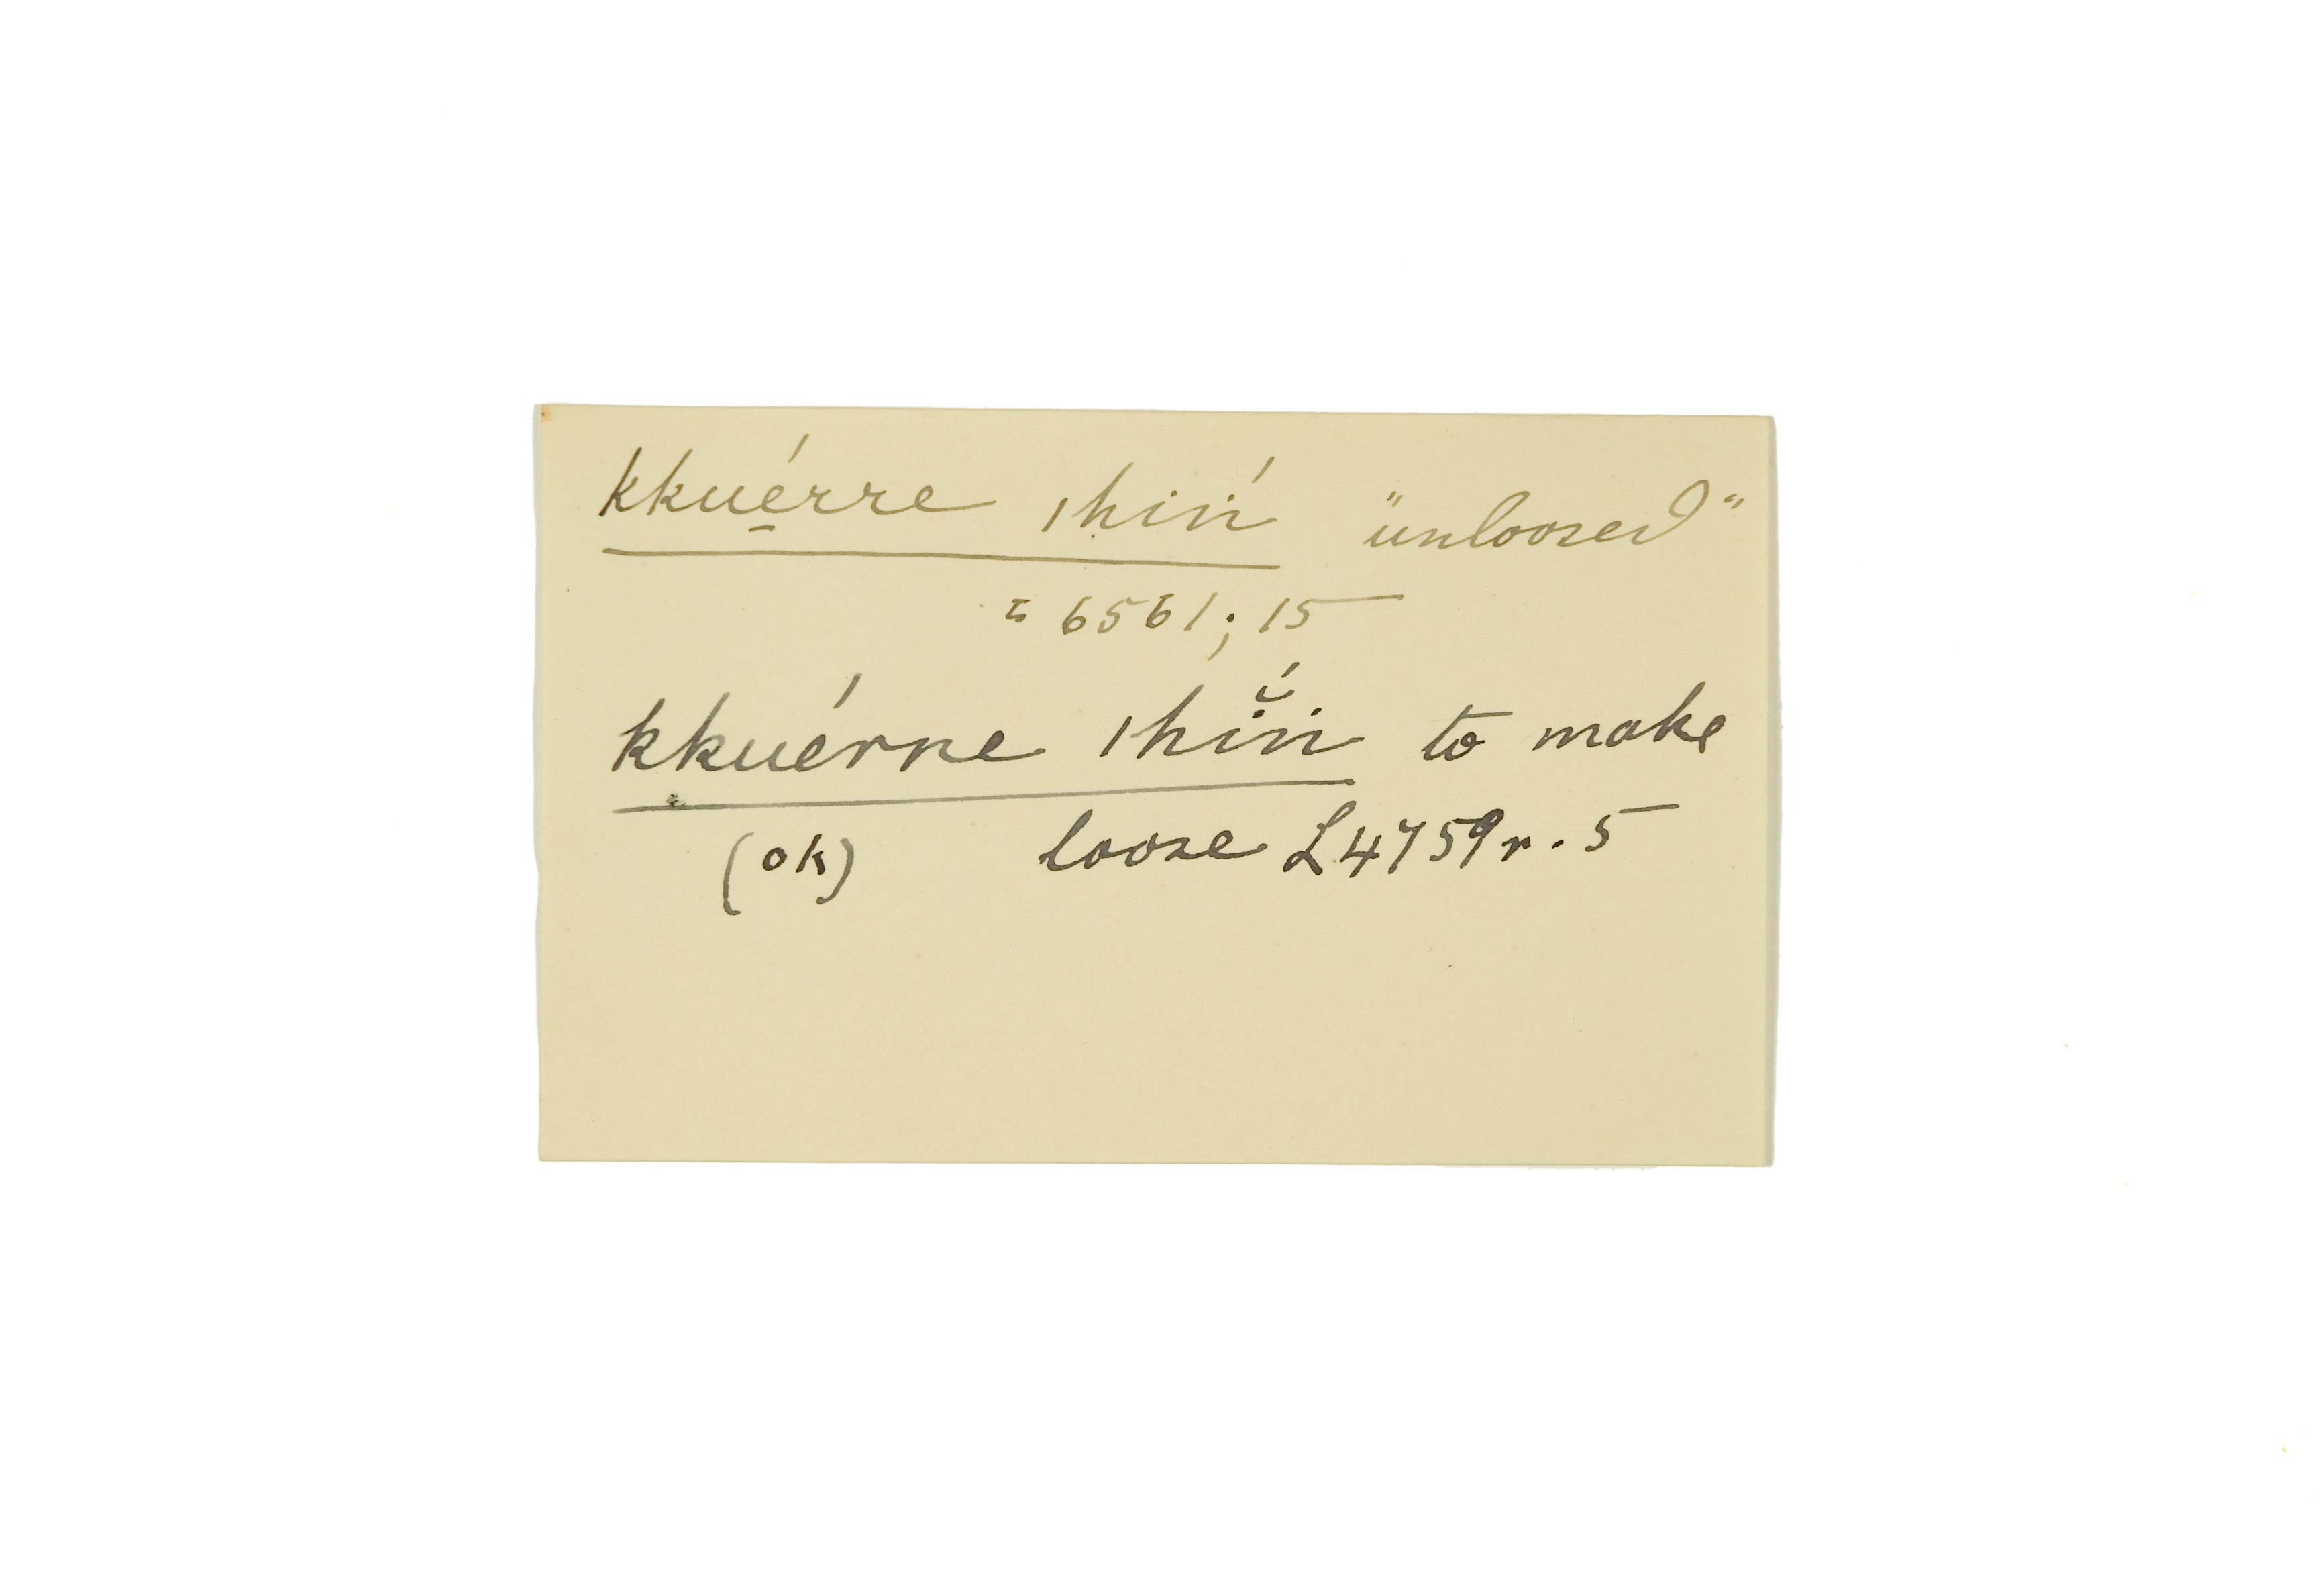 kkuérre |hiń "unloosed"
= 6561; 15
kkuérre |hĭń to make
(ok) loose L4759r. 5